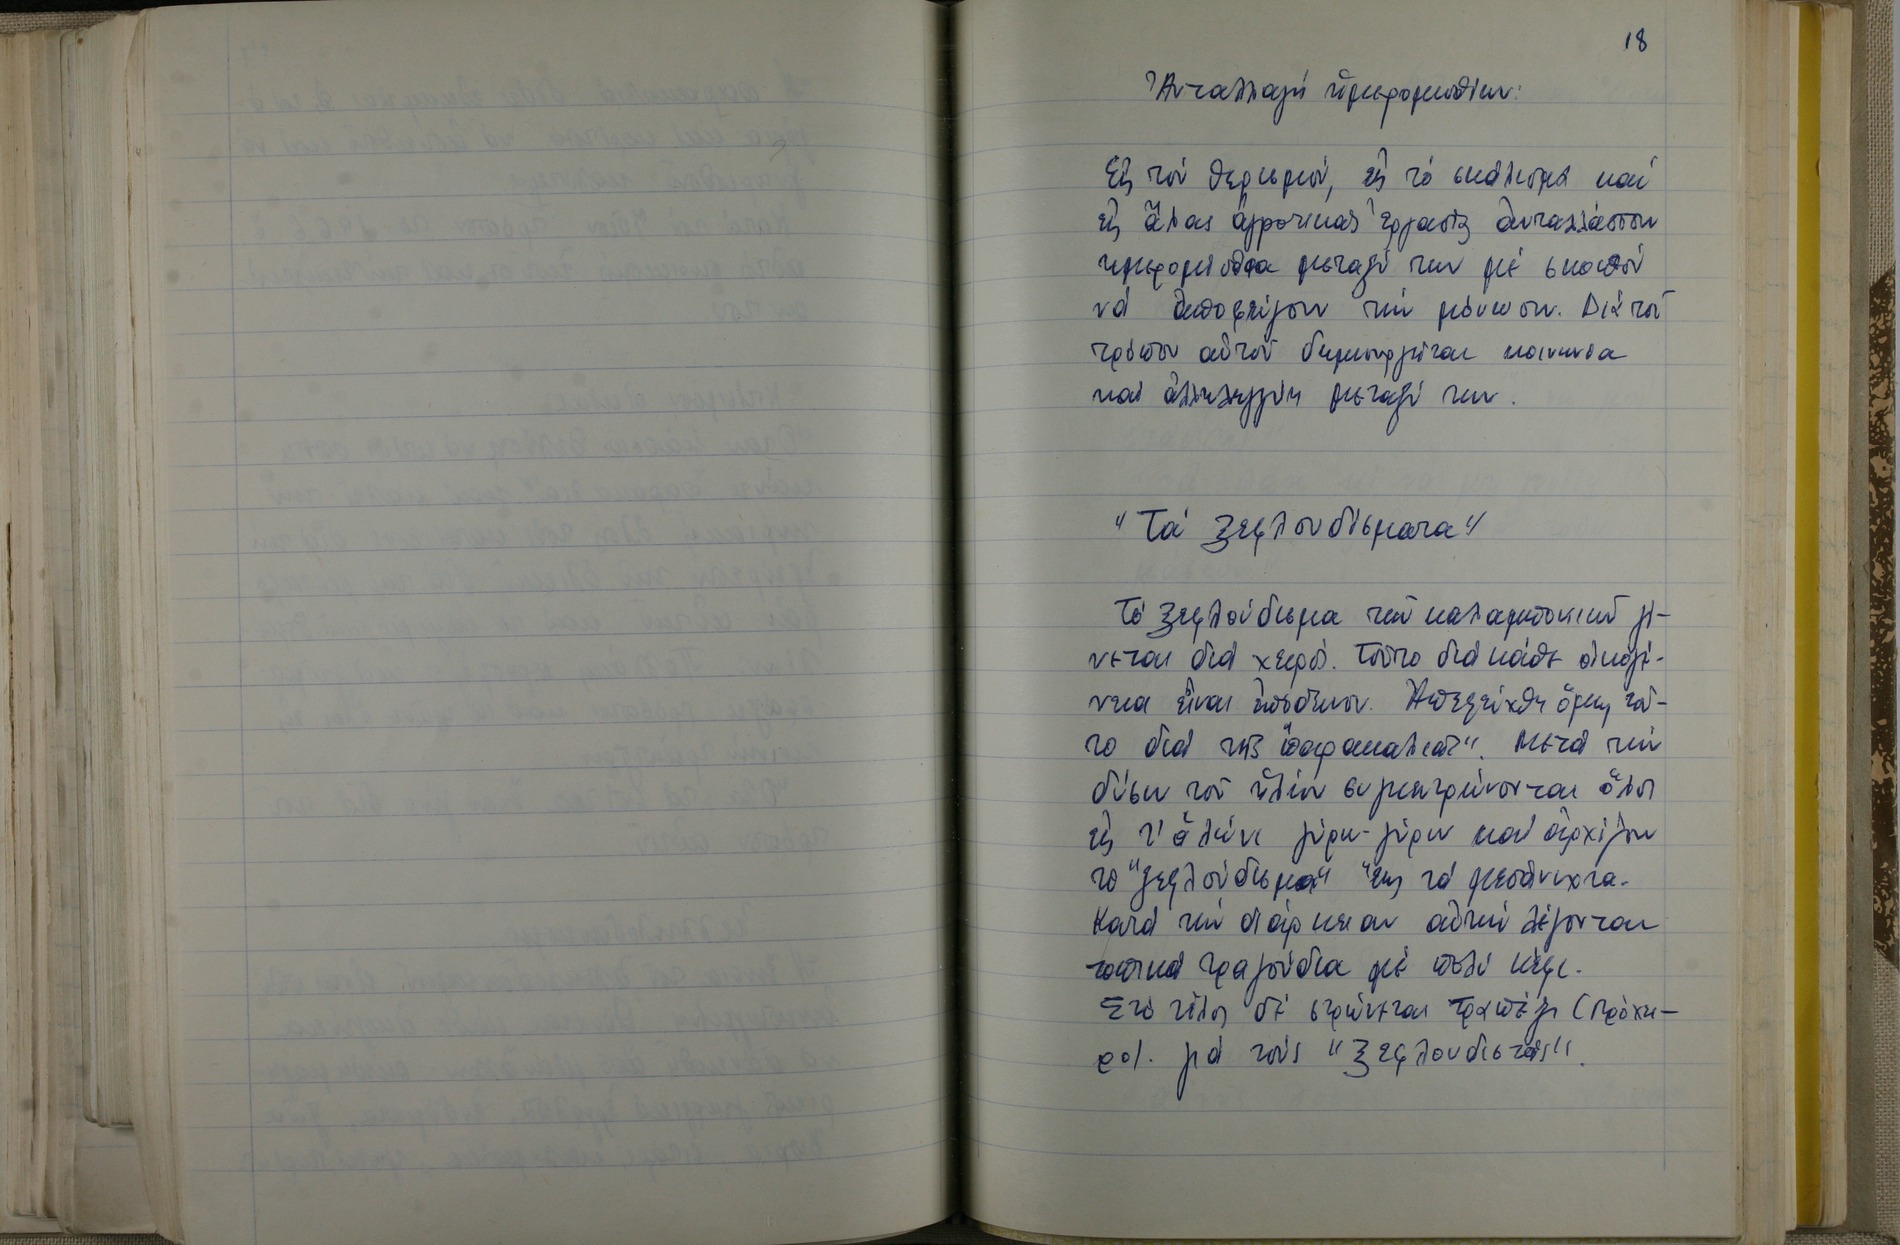 18
Ἀνταλλαγή ἡμερομισθίων:
Εἰς τόν θερισμόν, εἰς τό σκάλισμα καί
εἰς ἄλλας ἀγροτικάς ἐργασίας ἀνταλλάσσουν
ημερομίσθια μεταξύ των μέ σκοπόν
νά ἀποφεύγουν τήν μόνωσιν. Διά τοῦ
τρόπου αὐτοῦ δημιουργεῖται κοινωνία
καί ἀλληλεγγύη μεταξύ των.
"Τά ξεφλουδίσματα"
Τό ξεφλούδισμα τῶν καλαμποκιῶν γί-
νεται διά χειρός. Τοῦτο διά κάθε οἰκογέ-
νεια εἶναι ἐπίπονον. Ἀπεφεύχθη ὅμως τοῦ-
το διά τῆς "παρακαλιᾶς". Μετά τήν
δύσιν τοῦ ἡλίου συγκεντρώνονται ὅλοι
εἰς τ' ἁλώνι γύρω-γύρω καί ἀρχίζουν
το "ξεφλούδισμα" ἕως τά μεσάνυχτα.
Κατά τήν διάρκειαν αὐτήν λέγονται
τοπικά τραγούδια μέ πολύ κέφι.
Στό τέλος δέ στρώνεται τραπέζι (πρόχει-
ρο). γιά τούς "ξεφλουδιστάς".